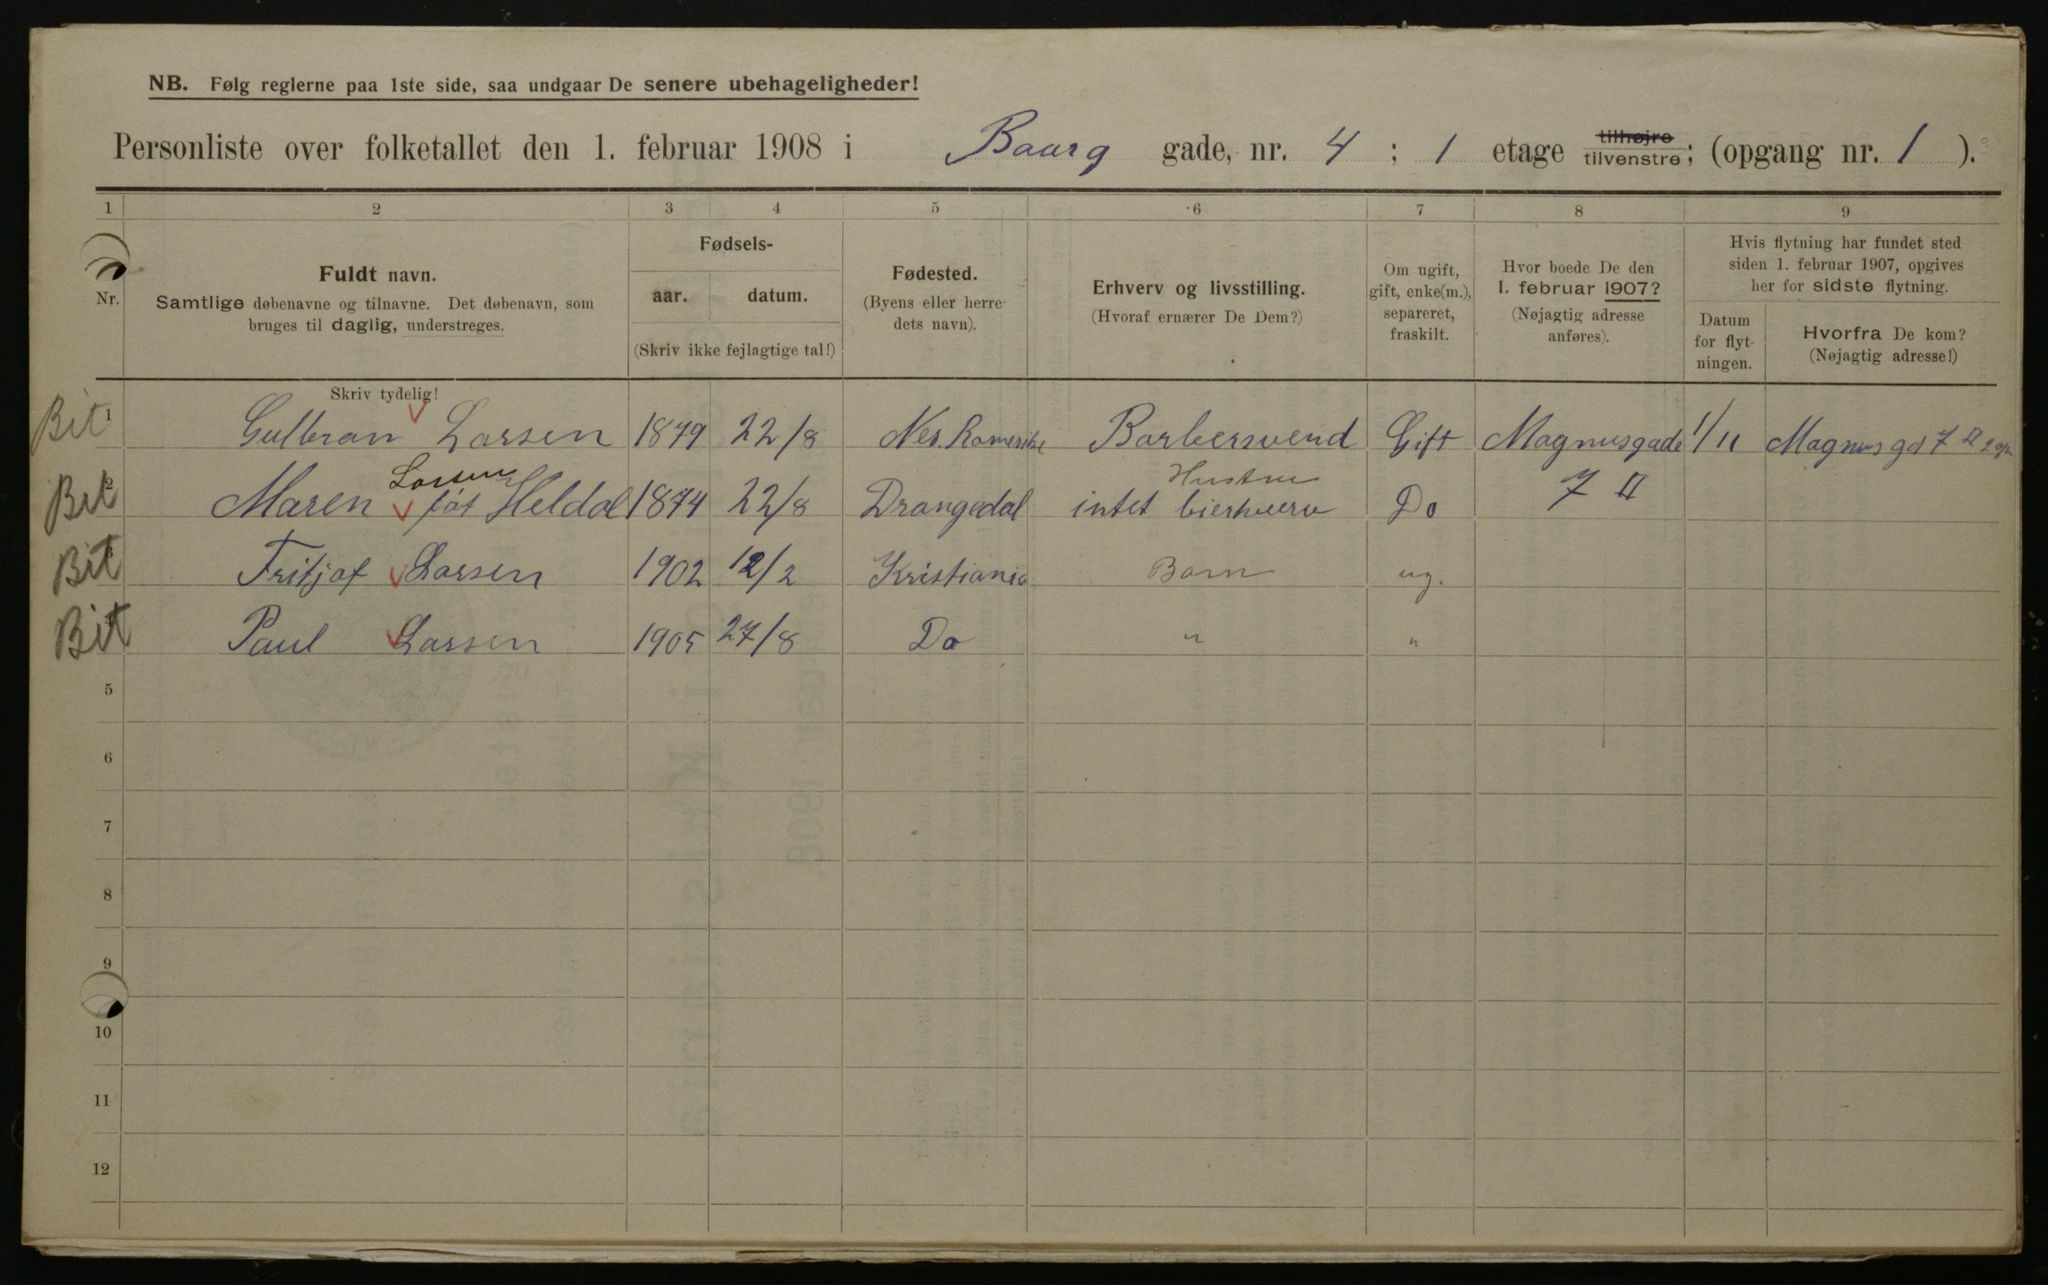 NB. Følg reglerne paa 1ste side, saa undgaar De senere ubehageligheder!
Personliste over folketallet den 1. februar 1908 i Baarg gade, nr. 4 ; 1 etage tilhøjre tilvenstre; (opgang nr. 1 ).
1 2 3 4 5 6 7 8 9
Nr.
Fuldt navn.
Samtlige døbenavne og tilnavne. Det døbenavn, som
bruges til daglig, understreges.
Fødsels-
aar. datum.
(Skriv ikke fejlagtige tal!)
Fødested.
(Byens eller herre-
dets navn).
Erhverv og livsstilling.
(Hvoraf ernærer De Dem?)
Om ugift,
gift, enke(m.),
separeret,
fraskilt.
Hvor boede De den
1. februar 1907?
(Nøjagtig adresse
anføres).
Hvis flytning har fundet sted
siden 1. februar 1907, opgives
her for sidste flytning.
Datum
for flyt-
ningen.
Hvorfra De kom?
(Nøjagtig adresse!)
Skriv tydelig!
Bit 1 Gulbran Larsen 1879 22/8 Nes. Romerike Barbersvend Gift Magnusgade 1/11 Magnus gd 7 II
Larsen Hustru
Bit 2 Maren føt Heldal 1874 22/8 Drangedal intet bierhverv Do 7 II
Bit 3 Fritjof Larsen 1902 12/2 Kristiania Barn ug.
Bit Paul Larsen 1905 27/8 Do " "
5
6
7
8
9
10
11
12